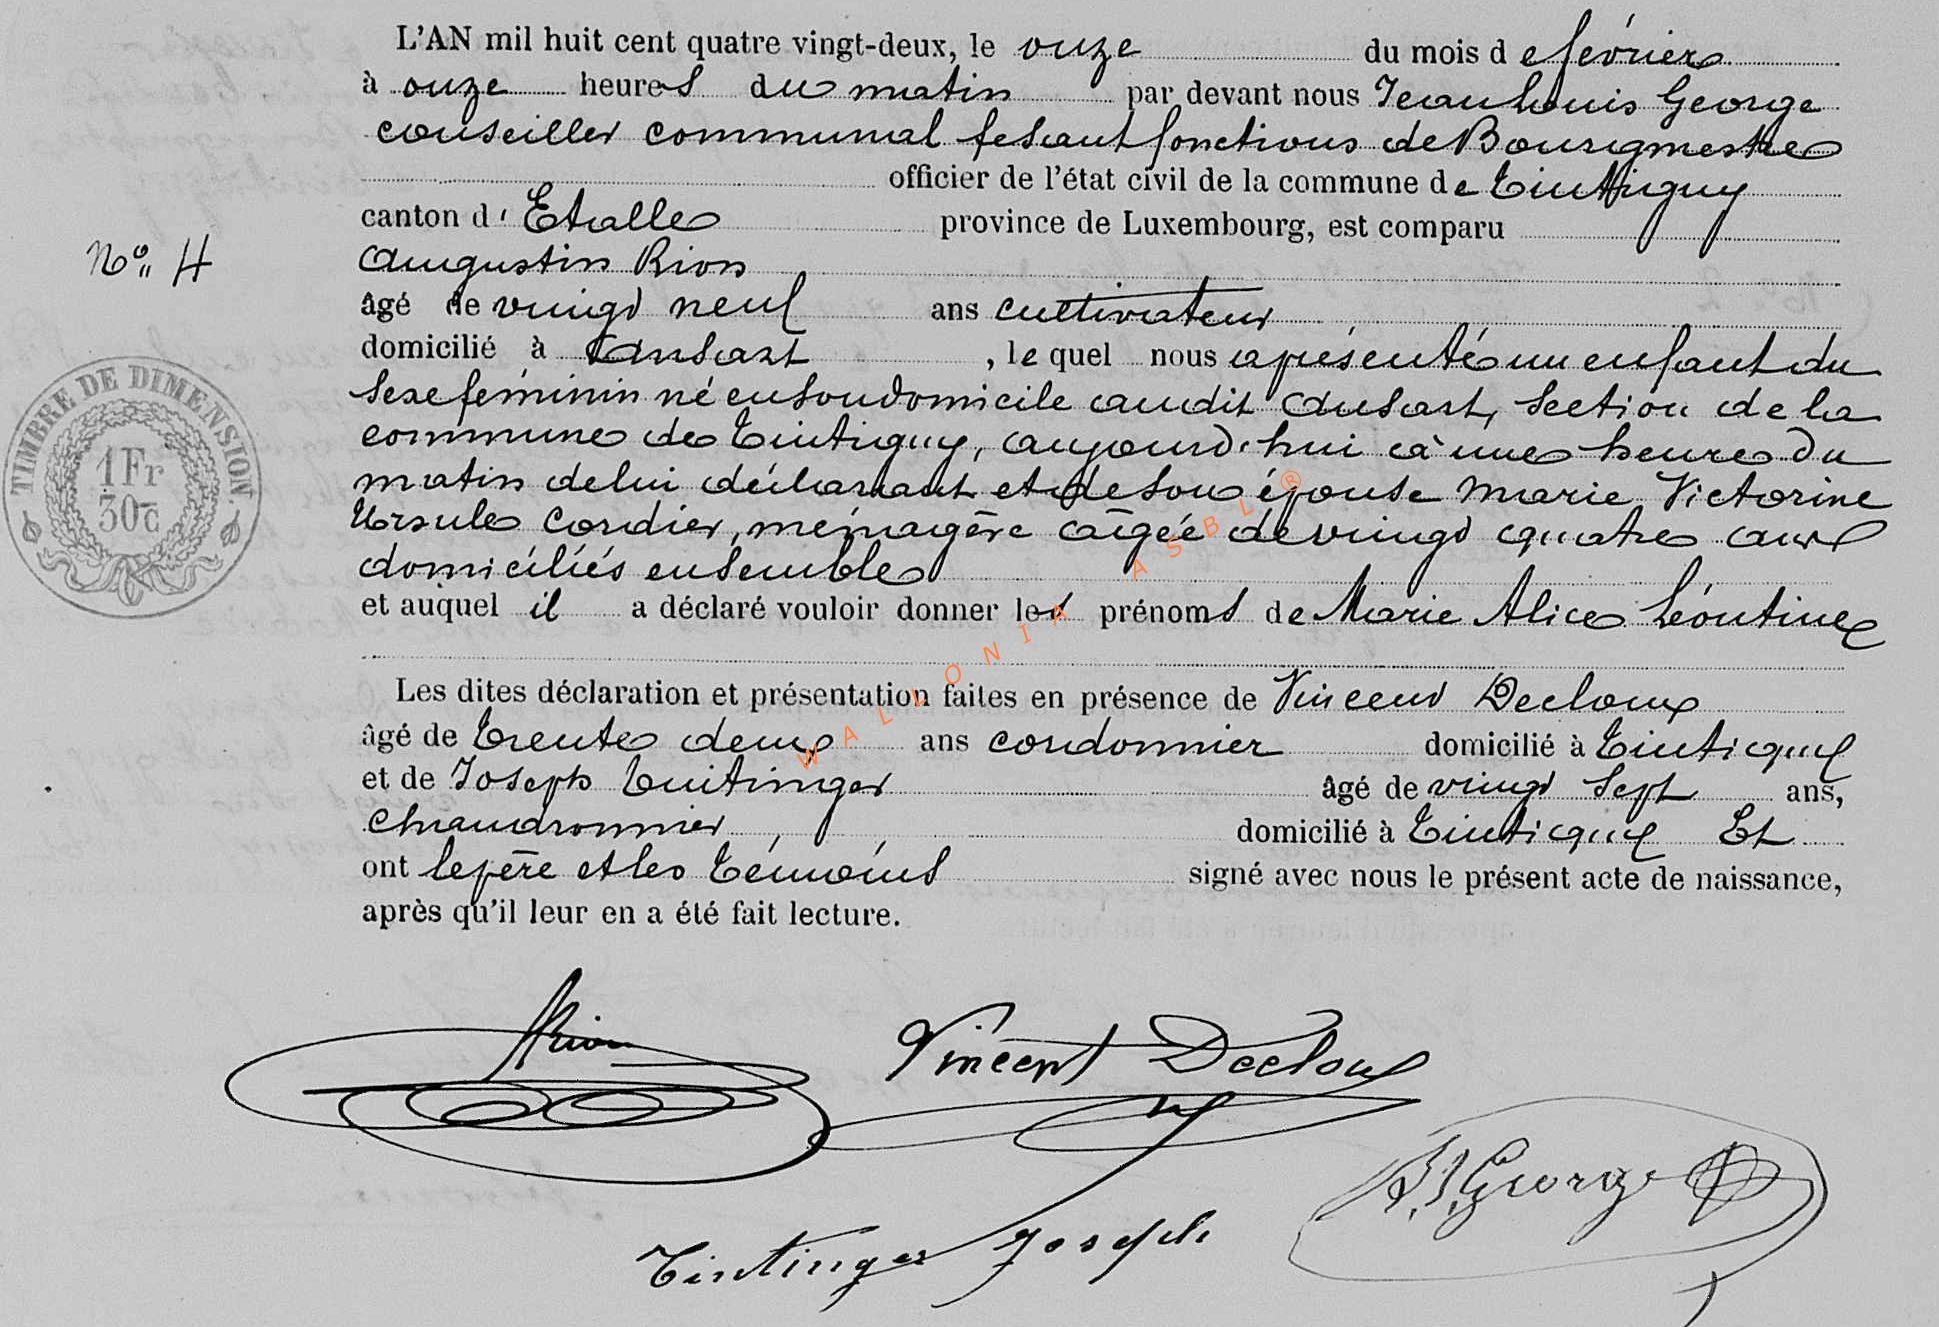 L'AN mil huit cent quatre vingt-deux, le onze du mois de février
à onze heures du matin par devant nous Jean Louis George
conseiller communal fesant fonctions de Bourgmestre
officier de l'état civil de la commune de Tintigny
canton d'Etalle province de Luxembourg, est comparu
N° 4
Augustin Rion
âgé de vingt neuf ans cultivateur
domicilié à Ansart, lequel nous a présenté un enfant du
sexe féminin né en son domicile audit Ansart, section de la
commune de Tintigny, aujourd'hui à une heure du
matin de lui déclarant et de son épouse Marie Victorine
Ursule Cordier, ménagère âgée de vingt quatre ans
domiciliés ensemble
et auquel il a déclaré vouloir donner les prénoms de Marie Alice Léontine
Les dites déclaration et présentation faites en présence de Vincent Decloux
âgé de trente deux ans cordonnier domicilié à Tintigny
et de Joseph Tintinger âgé de vingt sept ans,
chaudronnier domicilié à Tintigny Et
ont le père et les témoins signé avec nous le présent acte de naissance,
après qu'il leur en a été fait lecture.
TIMBRE DE DIMENSION.
1 Fr
30 c
WALLONIA ASBL ®
ARion
Vincent Decloux
JL George
Tintinger Joseph